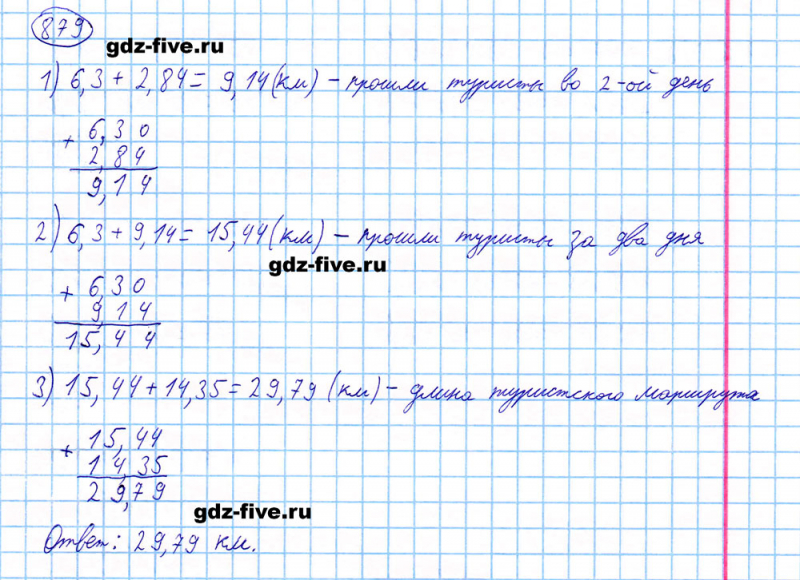 879
gdz-five.ru
1) 6,3 + 2,84 = 9,14 (км) - прошли туристы во 2-ой день
+ 6,30
2,84
9,14
2) 6,3 + 9,14 = 15,44 (км) - прошли туристы за два дня
gdz-five.ru
+ 6,30
9,14
15,44
3) 15,44 + 14,35 = 29,79 (км) - длина туристского маршрута
+ 15,44
14,35
29,79
gdz-five.ru
Ответ: 29,79 км.